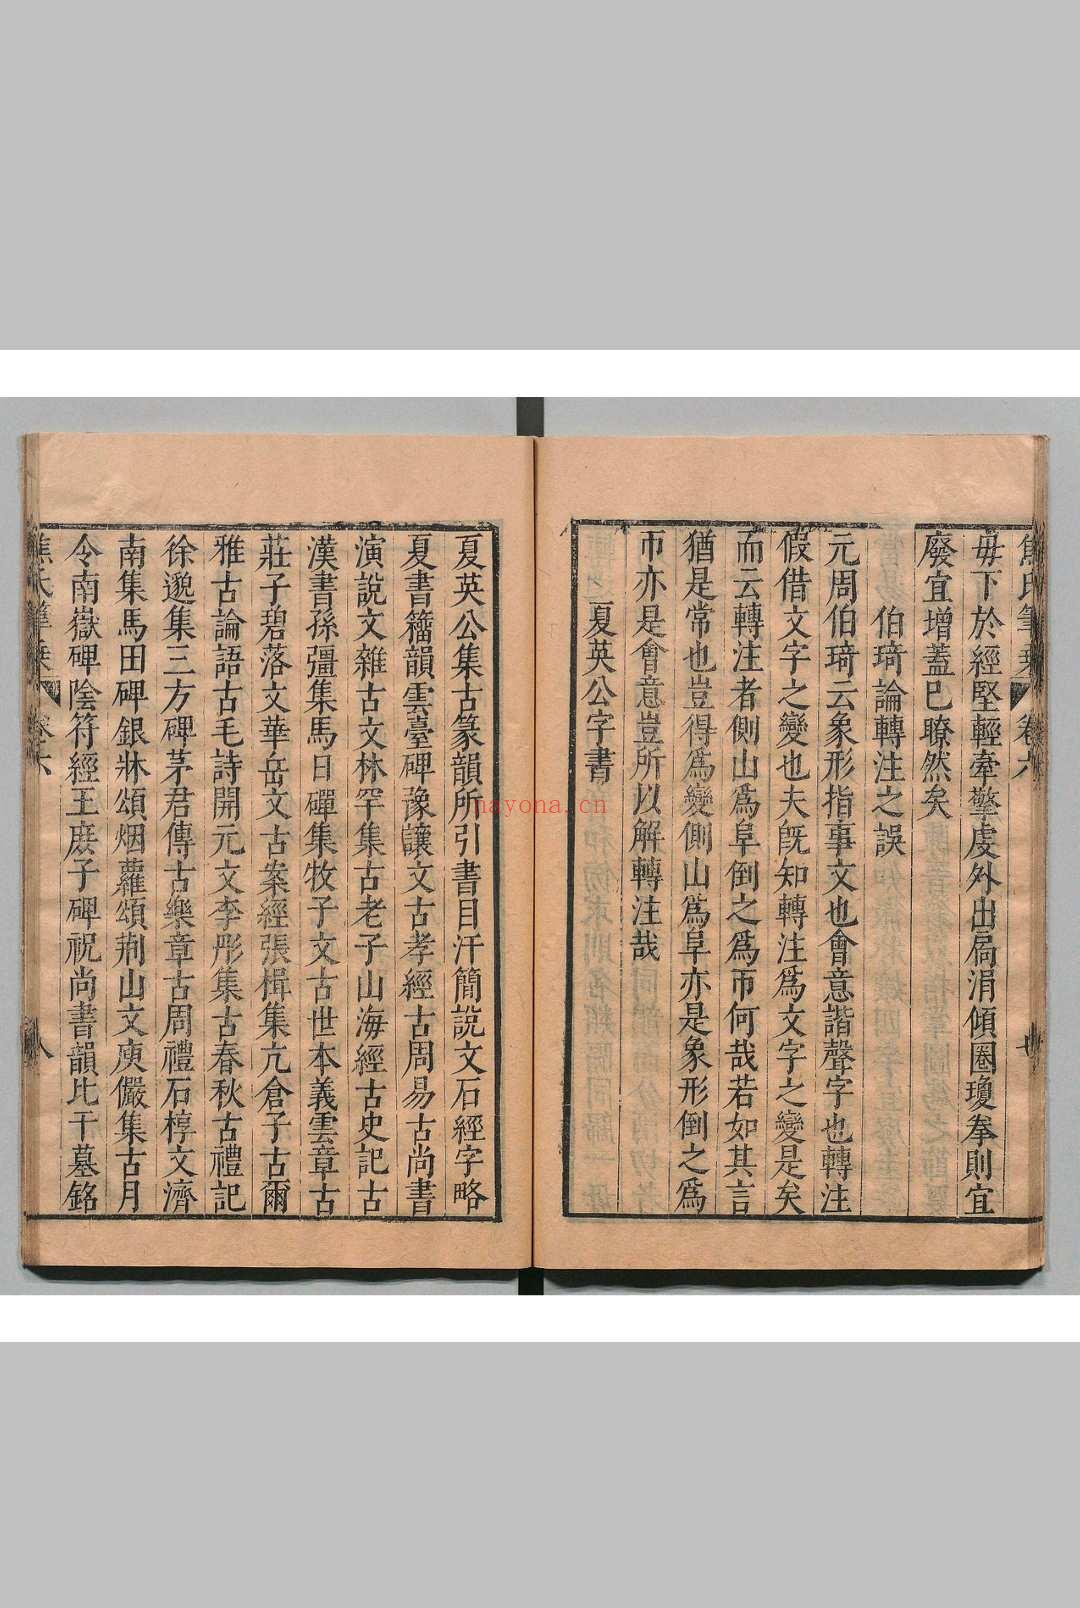 焦氏筆乘 卷六
毋下於經堅輕牽擎虔外出扃涓傾圈瓊拳則宜
廢宜增蓋已瞭然矣
伯琦論轉注之誤
元周伯琦云象形指事文也會意諧聲字也轉注
假借文字之變也夫旣知轉注爲文字之變是矣
而云轉注者側山爲阜倒之爲帀何哉若如其言
猶是常也豈得爲變側山爲阜亦是象形倒之爲
帀亦是會意豈所以解轉注哉
夏英公字書
夏英公集古篆韻所引書目汗簡說文石經字略
夏書籀韻雲臺碑豫讓文古孝經古周易古尚書
演說文雜古文林罕集古老子山海經古史記古
漢書孫彊集馬日磾集牧子文古世本義雲章古
莊子碧落文華岳文古案經張楫集亢倉子古爾
雅古論語古毛詩開元文李彤集古春秋古禮記
徐邈集三方碑茅君傳古樂章古周禮石椁文濟
南集馬田碑銀牀頌烟蘿頌荆山文庾儼集古月
令南嶽碑陰符經王庶子碑祝尚書韻比干墓銘
焦氏筆乘 卷六 八
nayona.cn